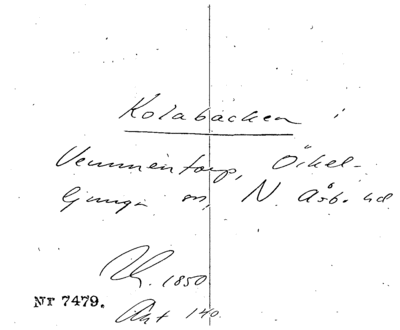 Kolabäcken i
Vemmentorp, Örkel-
ljunga sn, N. Åsb. hd
Uh. 1850
Nr 7479.
Ant 140.